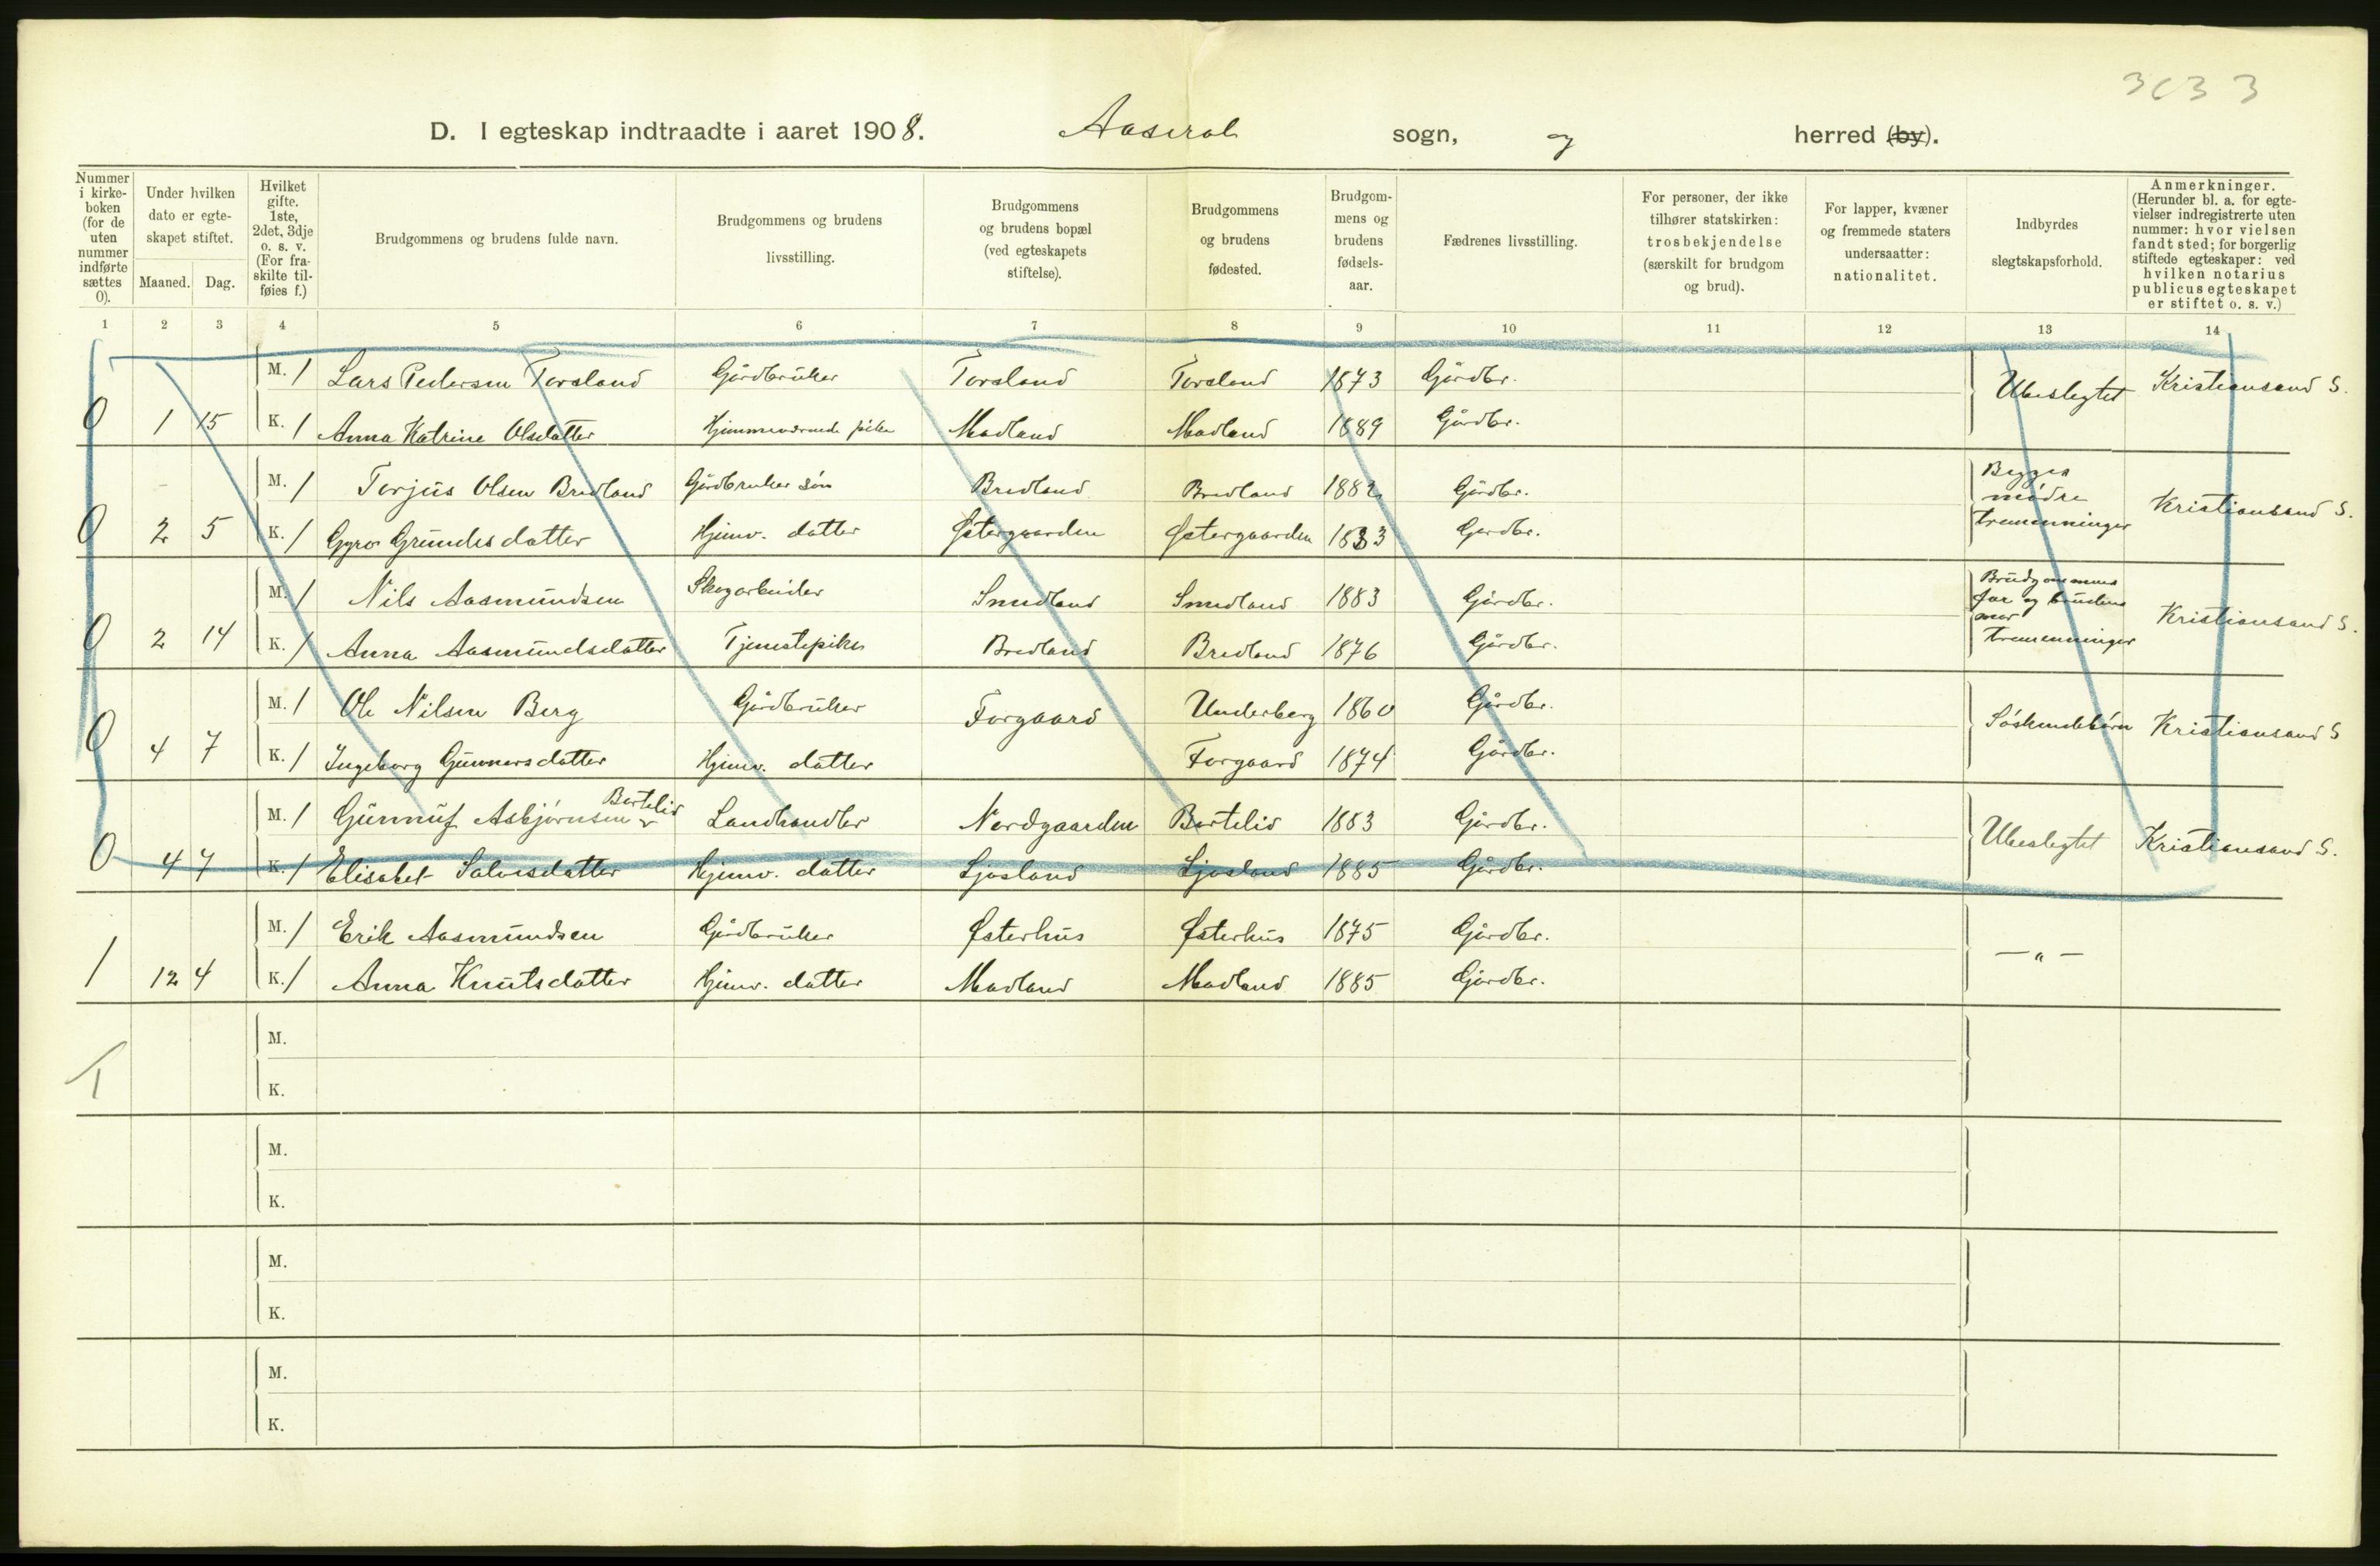 3033
D. I egteskap indtraadte i aaret 1908. Aaseral sogn, og herred (by).
Nummer i kirke-boken (for de uten nummer indførte sættes 0).
Under hvilken dato er egte-skapet stiftet.
Maaned. Dag.
Hvilket gifte. 1ste, 2det, 3dje o. s. v. (For fra-skilte til-føies f.)
Brudgommens og brudens fulde navn.
Brudgommens og brudens livsstilling.
Brudgommens og brudens bopæl (ved egteskapets stiftelse).
Brudgommens og brudens fødested.
Brudgom-mens og brudens fødsels-aar.
Fædrenes livsstilling.
For personer, der ikke tilhører statskirken: trosbekjendelse (særskilt for brudgom og brud).
For lapper, kvæner og fremmede staters undersaatter: nationalitet.
Indbyrdes slegtskapsforhold.
Anmerkninger. (Herunder bl. a. for egte-vielser indregistrerte uten nummer: hvor vielsen fandt sted; for borgerlig stiftede egteskaper: ved hvilken notarius publicus egteskapet er stiftet o. s. v.)
1 2 3 4 5 6 7 8 9 10 11 12 13 14
M. 1 Lars Pedersen Torsland Gårdbruker Torsland Torsland 1873 Gårdbr. Ubeslegtet Kristiansand S.
0 1 15 K. 1 Anna Katrine Olsdatter Hjemmeværende pike Madland Madland 1889 Gårdbr.
M. 1 Torjus Olsen Bredland Gårdbruker søn Bredland Bredland 1882 Gårdbr. Begges mødre tremenninger Kristiansand S.
0 2 5 K. 1 Gyro Grundesdatter Hjemv. datter Østergaarden Østergaarden 1883 Gardbr.
M. 1 Nils Aasmundsen Skogarbeider Smedland Smedland 1883 Gårdbr. Brudgommens far og brudens mor tremenninger Kristiansand S.
0 2 14 K. 1 Anna Aasmundsdatter Tjenestepike Bredland Bredland 1876 Gårdbr.
M. 1 Ole Nilsen Berg Gårdbruker Forgaard Underberg 1860 Gårdbr. Søskendebørn Kristiansand S
0 4 7 K. 1 Ingeborg Gunnarsdatter Hjemv. datter Forgaard 1874 Gårdbr.
M. 1 Gunnuf Asbjørnsen Bortelid Landhandler Nordgaarden Bortelid 1883 Gårdbr. Ubeslegtet Kristiansand S.
0 4 7 K. 1 Elisabet Salvesdatter Hjemv. datter Ljosland Ljosland 1885 Gårdbr.
M. 1 Erik Aasmundsen Gårdbruker Østerhus Østerhus 1875 Gårdbr. — " —
1 12 4 K. 1 Anna Knutsdatter Hjemv. datter Madland Madland 1885 Gårdbr.
M.
K.
M.
K.
M.
K.
M.
K.